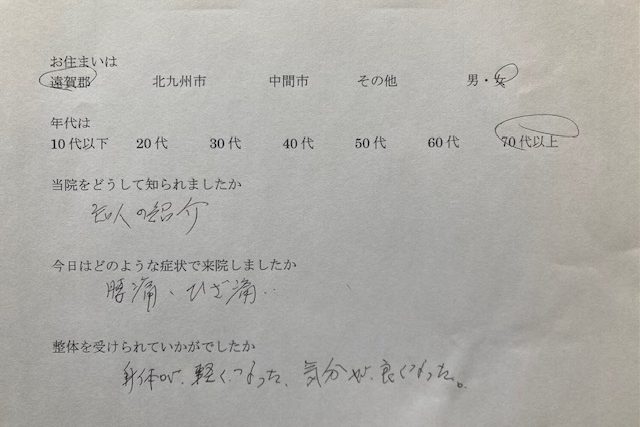 お住まいは
遠賀郡 北九州市 中間市 その他 男・女
年代は
10代以下 20代 30代 40代 50代 60代 70代以上
当院をどうして知られましたか
知人の紹介
今日はどのような症状で来院しましたか
腰痛、ひざ痛..
整体を受けられていかがでしたか
身体が、軽くなった、気分が、良くなった。